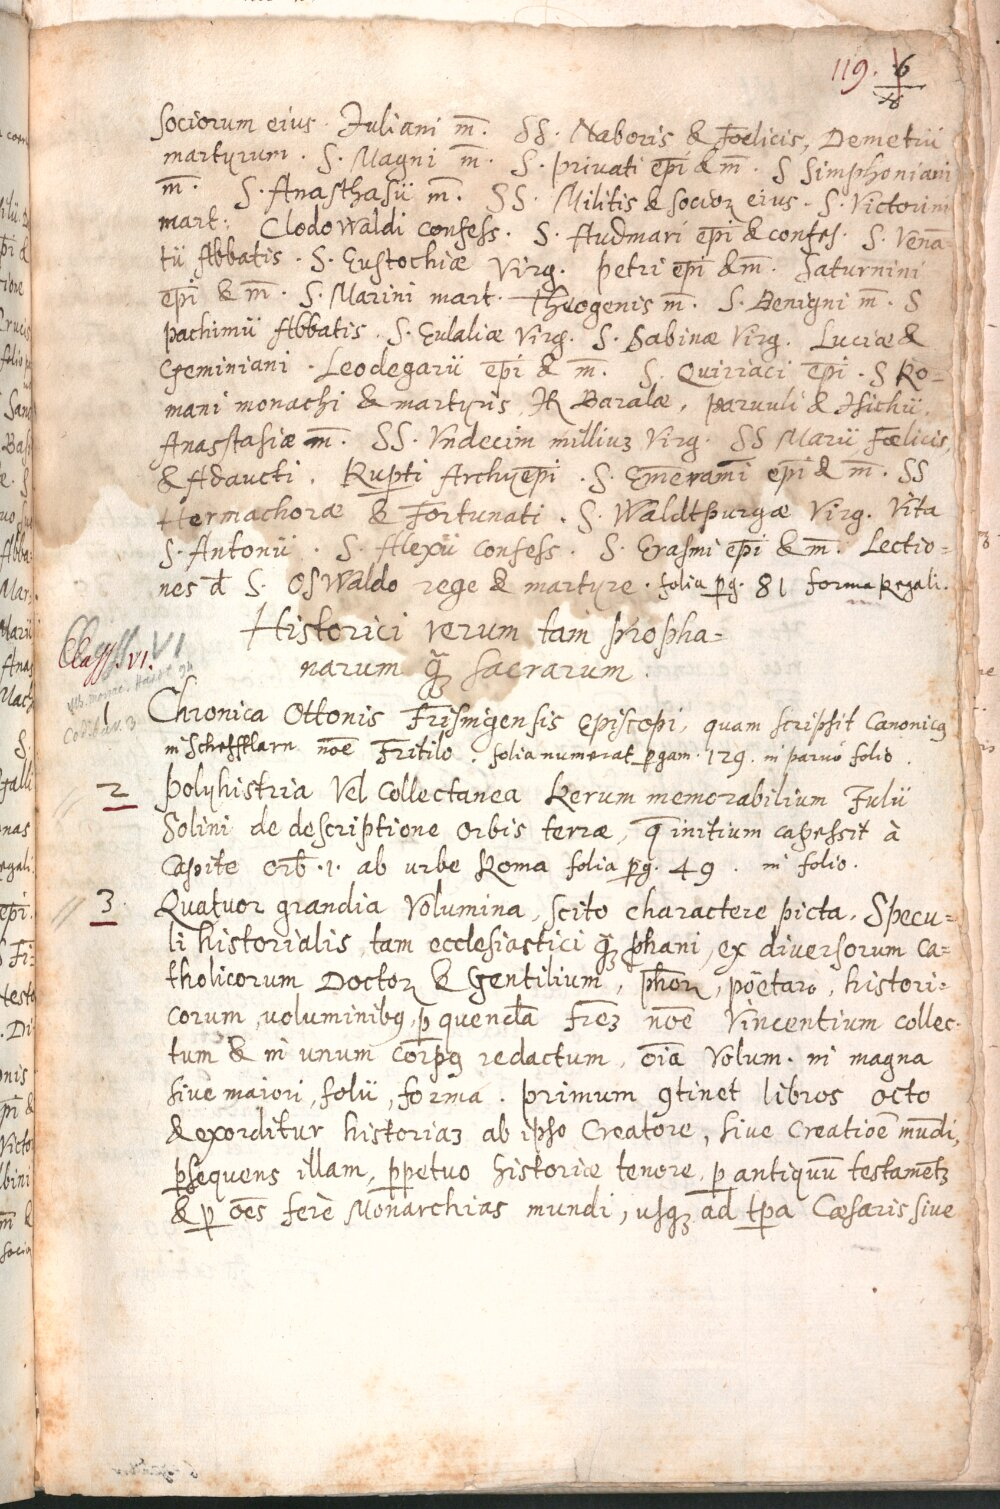 119. 6
18
Sociorum eius. Juliani m̄. SS. Naboris & Foelicis, Demetrii
martyrum. S. Magni m̄. S. privati ep̄i & m̄. S Simphoniani
m̄. S. Anasthasii m̄. SS. Militis & socioꝝ eius. S. Victorini
mart: Clodowaldi confess. S. Audmari ep̄i & confes. S. Venā-
tii Abbatis. S. Eustochiæ Virg. petri ep̄i & m̄. Saturnini
ep̄i & m̄. S. Marini mart. Theogenis m̄. S. Benigni m̄. S
pachimii Abbatis. S. Eulaliæ Virg. S. Sabinæ Virg. Luciæ &
Geminiani. Leodegarii ep̄i & m̄. S. Quiriaci ep̄i. S Ro-
mani monachi & martyris, Baralæ, paruuli & Hichii.
Anastasiæ m̄. SS. Vndecim milliuꝫ Virg. SS Marii Fœlicis,
& Adaucti. Rup̱ti Archyep̄i. S. Em̄erami ep̄i & m̄. SS
Hermachoræ & Fortunati. S. Waldtpurgæ Virg. Vita
S. Antonii. S. Alexii confess. S. Erasmi ep̄i & m̄. Lectio=
nes đ S. OSWaldo rege & martyre. folia ꝑg. 81 forma Regali.
Historici rerum tam propha=
narum q̄ꝫ sacrarum.
Class. VI
Class. VI.
Cod. bav. 3
1 Chronica Ottonis Frisingensis episcopi, quam scripsit Canonicꝰ
in Schefftlarn noe Fritilo. folia numerat ꝑgam. 129. in paruo folio.
2 polyhistria Vel Collectanea Rerum memorabilium Julii
Solini de descriptione orbis terræ, q̄ initium capessit à
Capite Orb̄ .1. ab urbe Roma folia ꝑg. 49. in folio.
3. Quatuor grandia Volumina, scito charactere picta, Specu=
li historialis, tam ecclesiastici q̄ꝫ ꝓhani, ex diversorum Ca=
tholicorum Doctoꝝ & Gentilium, ph̄oꝝ, pöetarꝝ, histori=
corum, voluminibꝰ, ꝑ quendā fr̄eꝫ noe Vincentium collec-
tum & in unum corpꝰ redactum, oīa Volum. in magna
sive maiori, folii, forma. primum ꝯtinet libros octo
& exorditur historiaꝫ ab ipso Creatore, sive Creatioē mūdi,
ꝓsequens illam, ꝑpetuo historiæ tenore, ꝑ antiquū testamētꝫ
& ꝑ oēs ferè Monarchias mundi, usqꝫ ad tꝑa Cæsaris sive